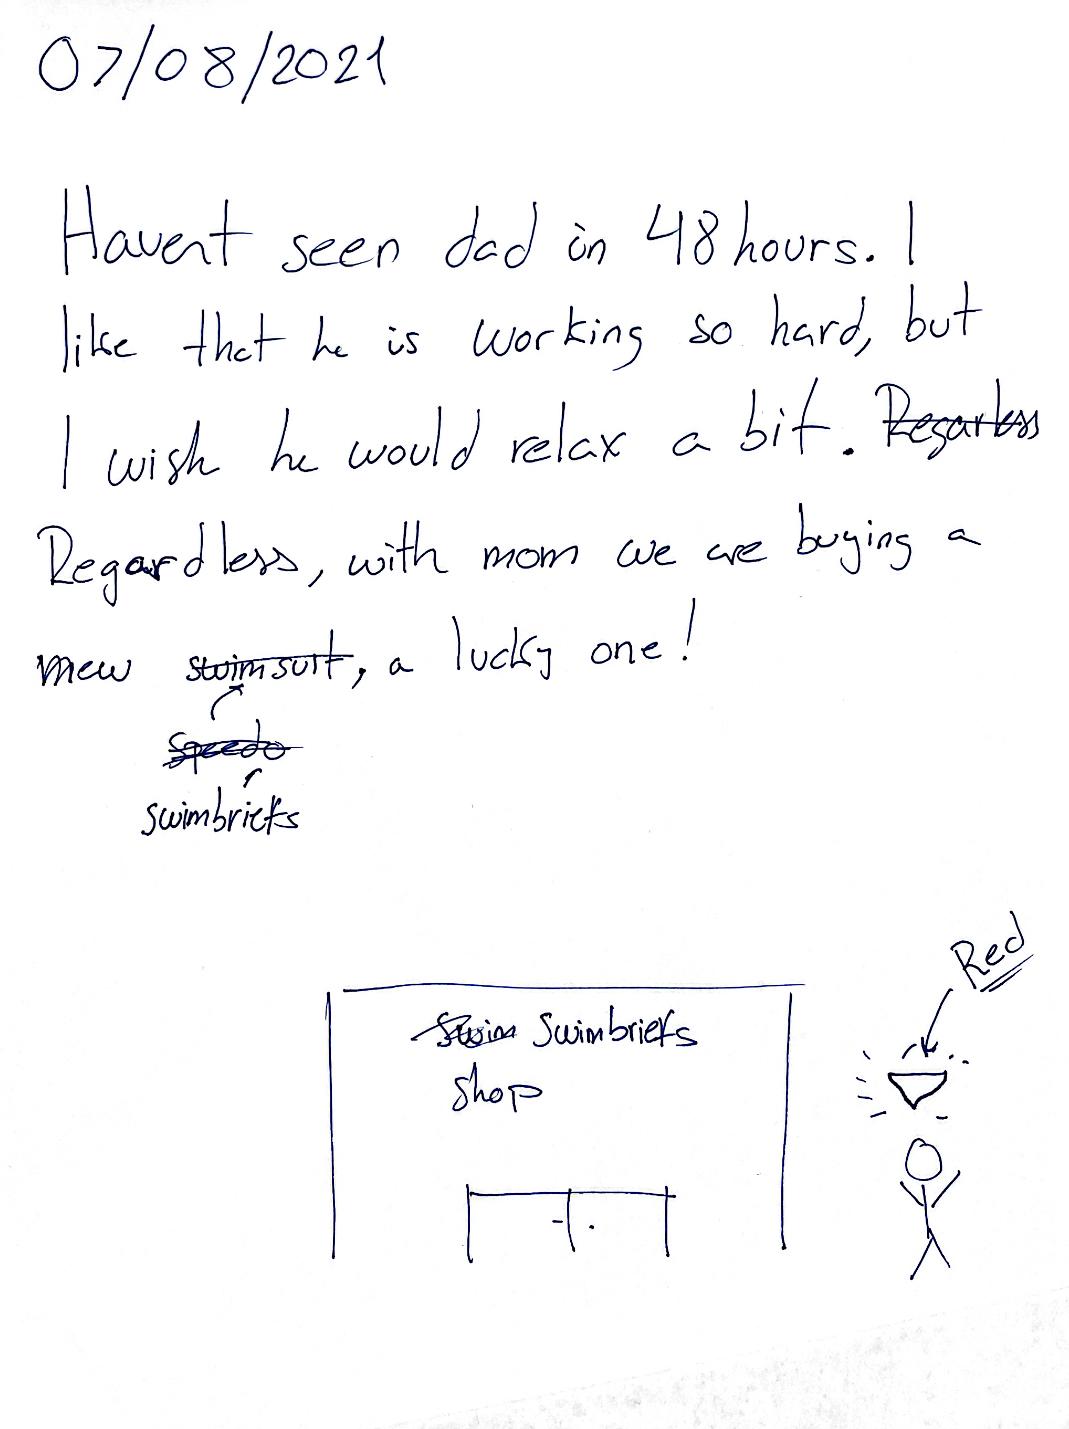 07/08/2021
Havent seen dad in 48 hours. I
like that he is working so hard, but
I wish he would relax a bit. Regarless
Regardless, with mom we are buying a
new swimsuit, a lucky one!
Speedo
swimbriefs
Red
Swim Swimbriefs
Shop